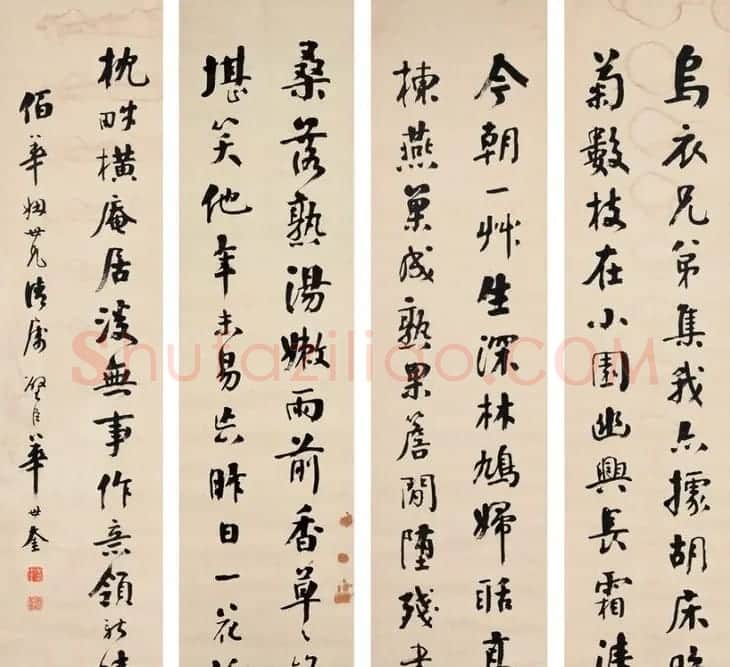 烏衣兄弟集我亦據胡床
菊數枝在小園幽興長霜清
今朝一艸生深林鳩婦聒高
棟燕巢成熟果簷間墮殘書
桑落熟湯嫩雨前香草〻
堪笑他年未易忘昨日一花
枕畔橫庵居漫無事作意領新
伯華姻世兄清屬 璧臣華世奎
Shutaziliao.COM